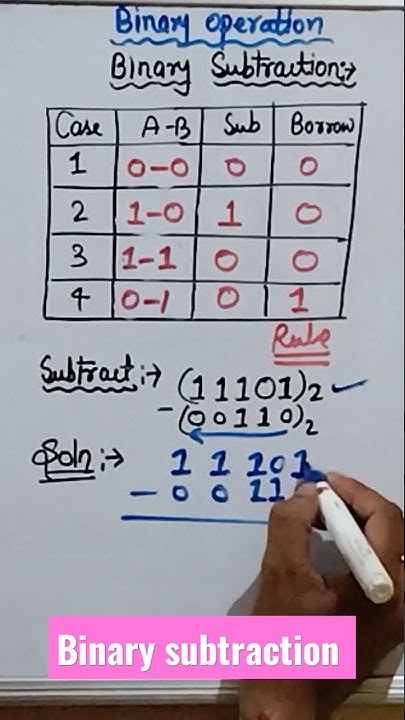 Binary operation
Binary Subtraction:→
Case A-B Sub Borrow
1 0-0 0 0
2 1-0 1 0
3 1-1 0 0
4 0-1 0 1
Rule
Subtract:→ (11101)2 ✓
-(00110)2
Soln:→ 1 1 1 0 1
- 0 0 1 1
Binary subtraction